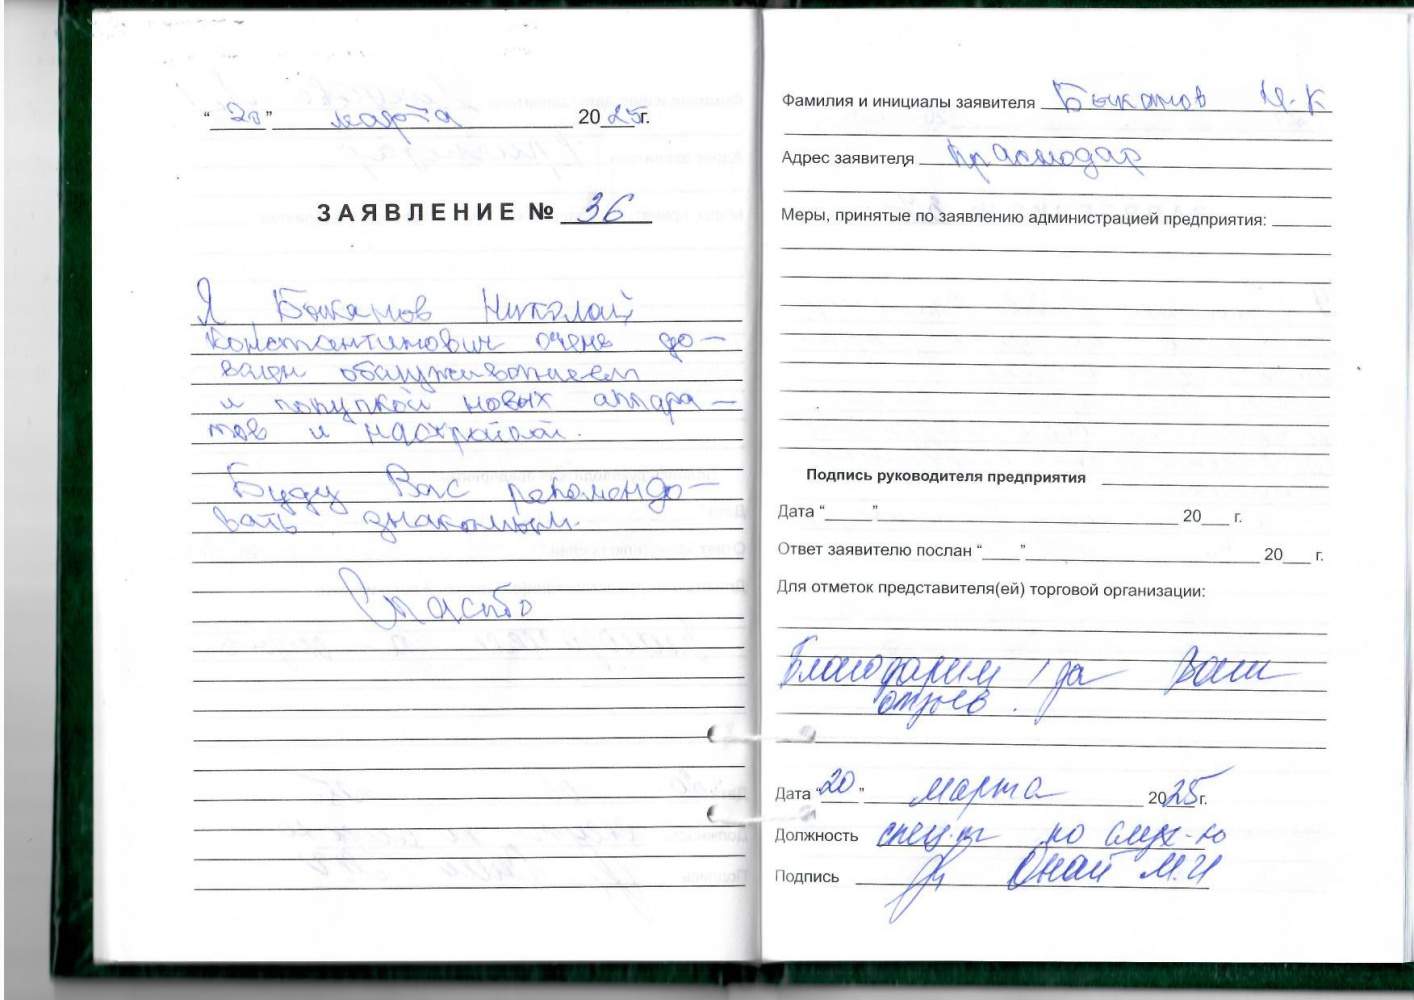 “20” марта 2025г.
ЗАЯВЛЕНИЕ № 36
Я Быканов Николай
Константинович очень до-
волен обслуживанием
и покупкой новых аппара-
тов и настройкой.
Буду Вас рекомендо-
вать знакомым.
Спасибо
Фамилия и инициалы заявителя Быканов Н.К
Адрес заявителя Краснодар
Меры, принятые по заявлению администрацией предприятия:
Подпись руководителя предприятия
Дата “ ” 20 г.
Ответ заявителю послан “ ” 20 г.
Для отметок представителя(ей) торговой организации:
Благодарим за Ваш
отзыв.
Дата “20” марта 2025г.
Должность спец-т по слух-ю
Подпись М.И